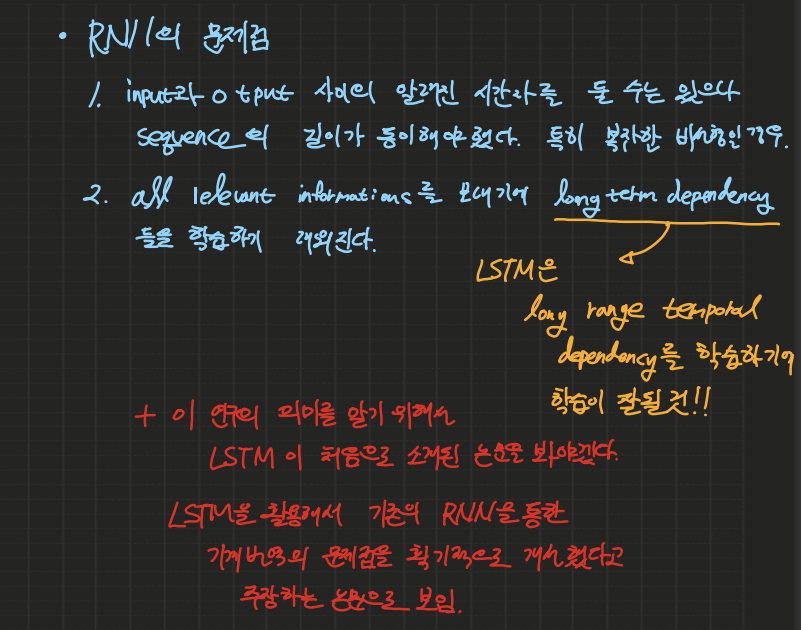 • RNN의 문제점
1. input과 output 사이의 알려진 시간차를 둘 수는 있으나
sequence의 길이가 동일해야했다. 특히 복잡한 비선형인 경우.
2. all relevant informations를 보내기에 long term dependency
들을 학습하기 어려워진다.
LSTM은
long range temporal
dependency를 학습하기에
학습이 잘될 것!!
+ 이 연구의 의미를 알기 위해서
LSTM이 처음으로 소개된 논문을 봐야겠다.
LSTM을 활용해서 기존의 RNN을 통한
기계번역의 문제점을 획기적으로 개선했다고
주장하는 논문으로 보임.